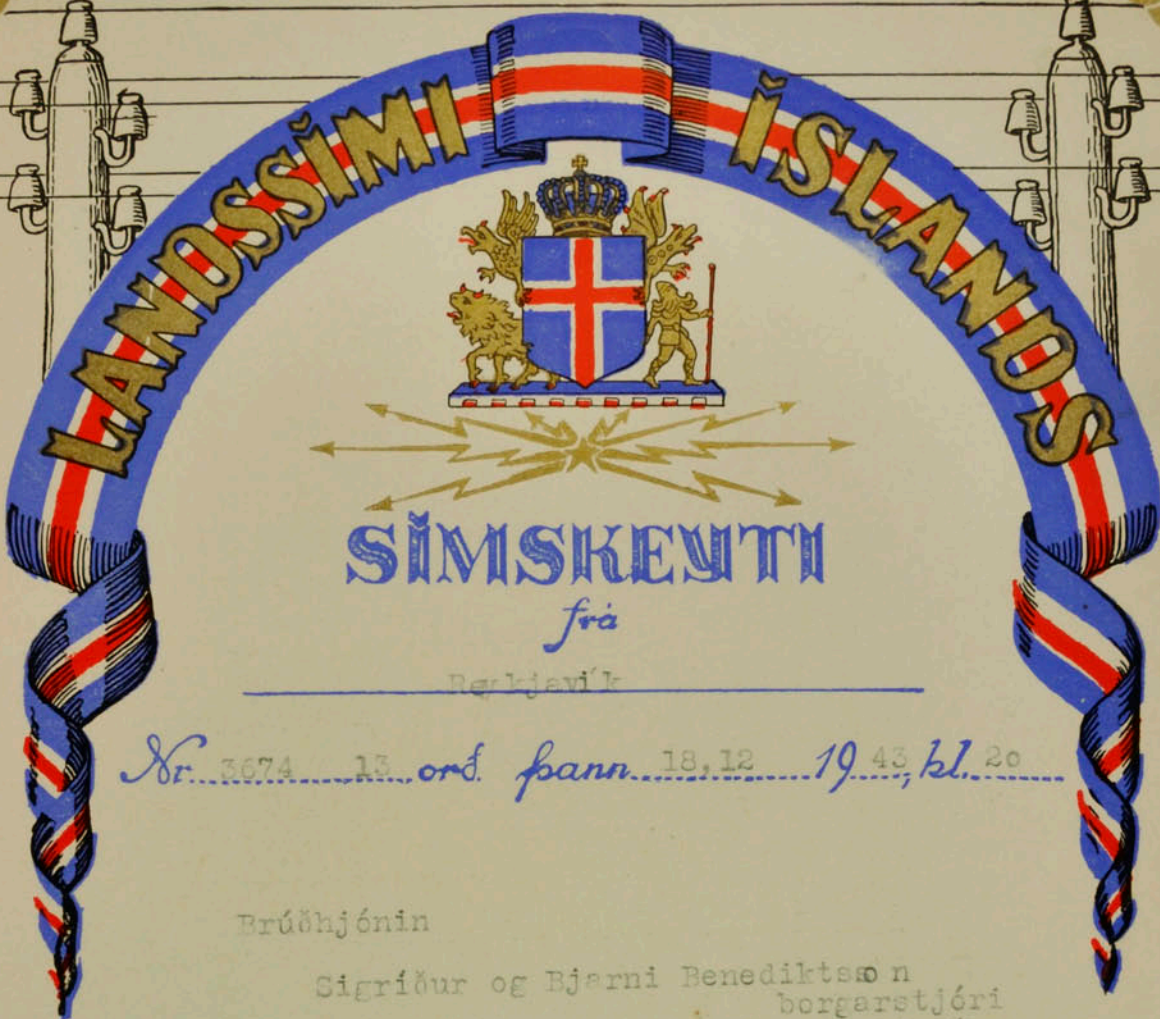 LANDSSÍMI ÍSLANDS
SÍMSKEYTI
frá
Reykjavík
Nr. 3674 13 orð. þann 18,12 1943, kl. 20
Brúðhjónin
Sigríður og Bjarni Benediktsson
borgarstjóri